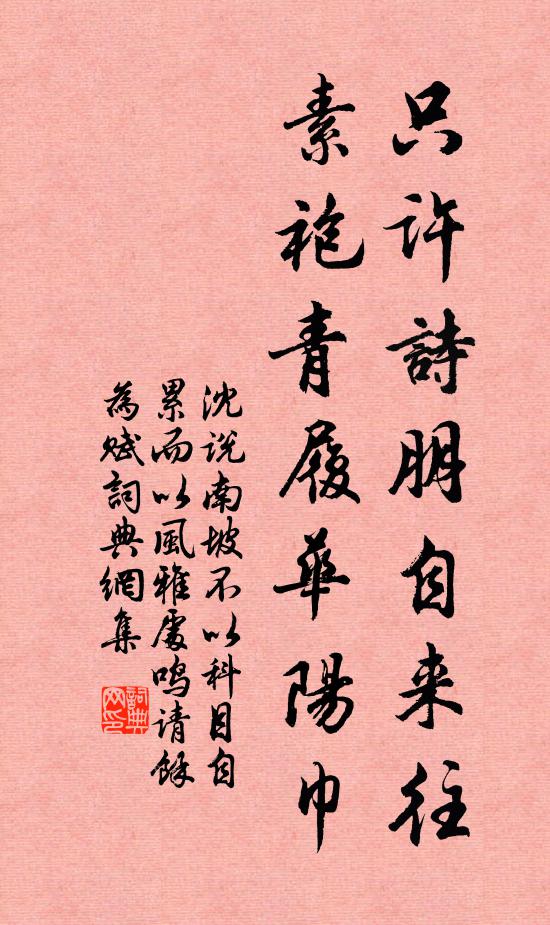 只许詩朋自来往
素袍青履華陽巾
沈说南坡不以科目自
累而以風雅處鸣请餘
為赋詞典網集
詞典
网印